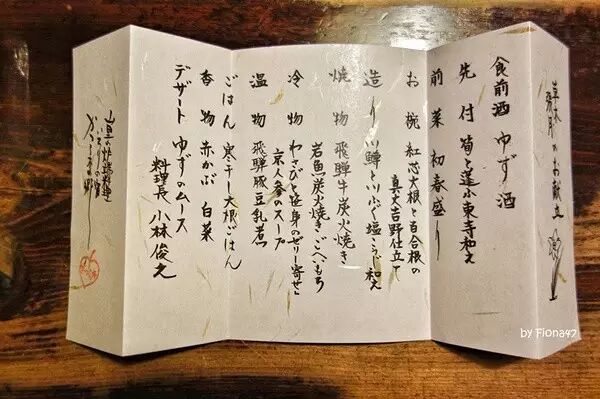 食前酒 ゆず酒
先付 筍と蓬小東寺和え
前菜 初春盛り
お椀 紅芯大根と百合根の
真丈吉野仕立て
造り 川鱒と川ふぐ塩こうじ和え
焼物 飛騨牛炭火焼き
岩魚炭火焼き・ごへいもち
冷物 わさびと笹身のゼリー寄せ
京人参のスープ
温物 飛騨豚豆乳煮
ごはん 寒干し大根ごはん
香物 赤かぶ 白菜
デザート ゆずのムース
料理長 小林俊之
by Fiona47